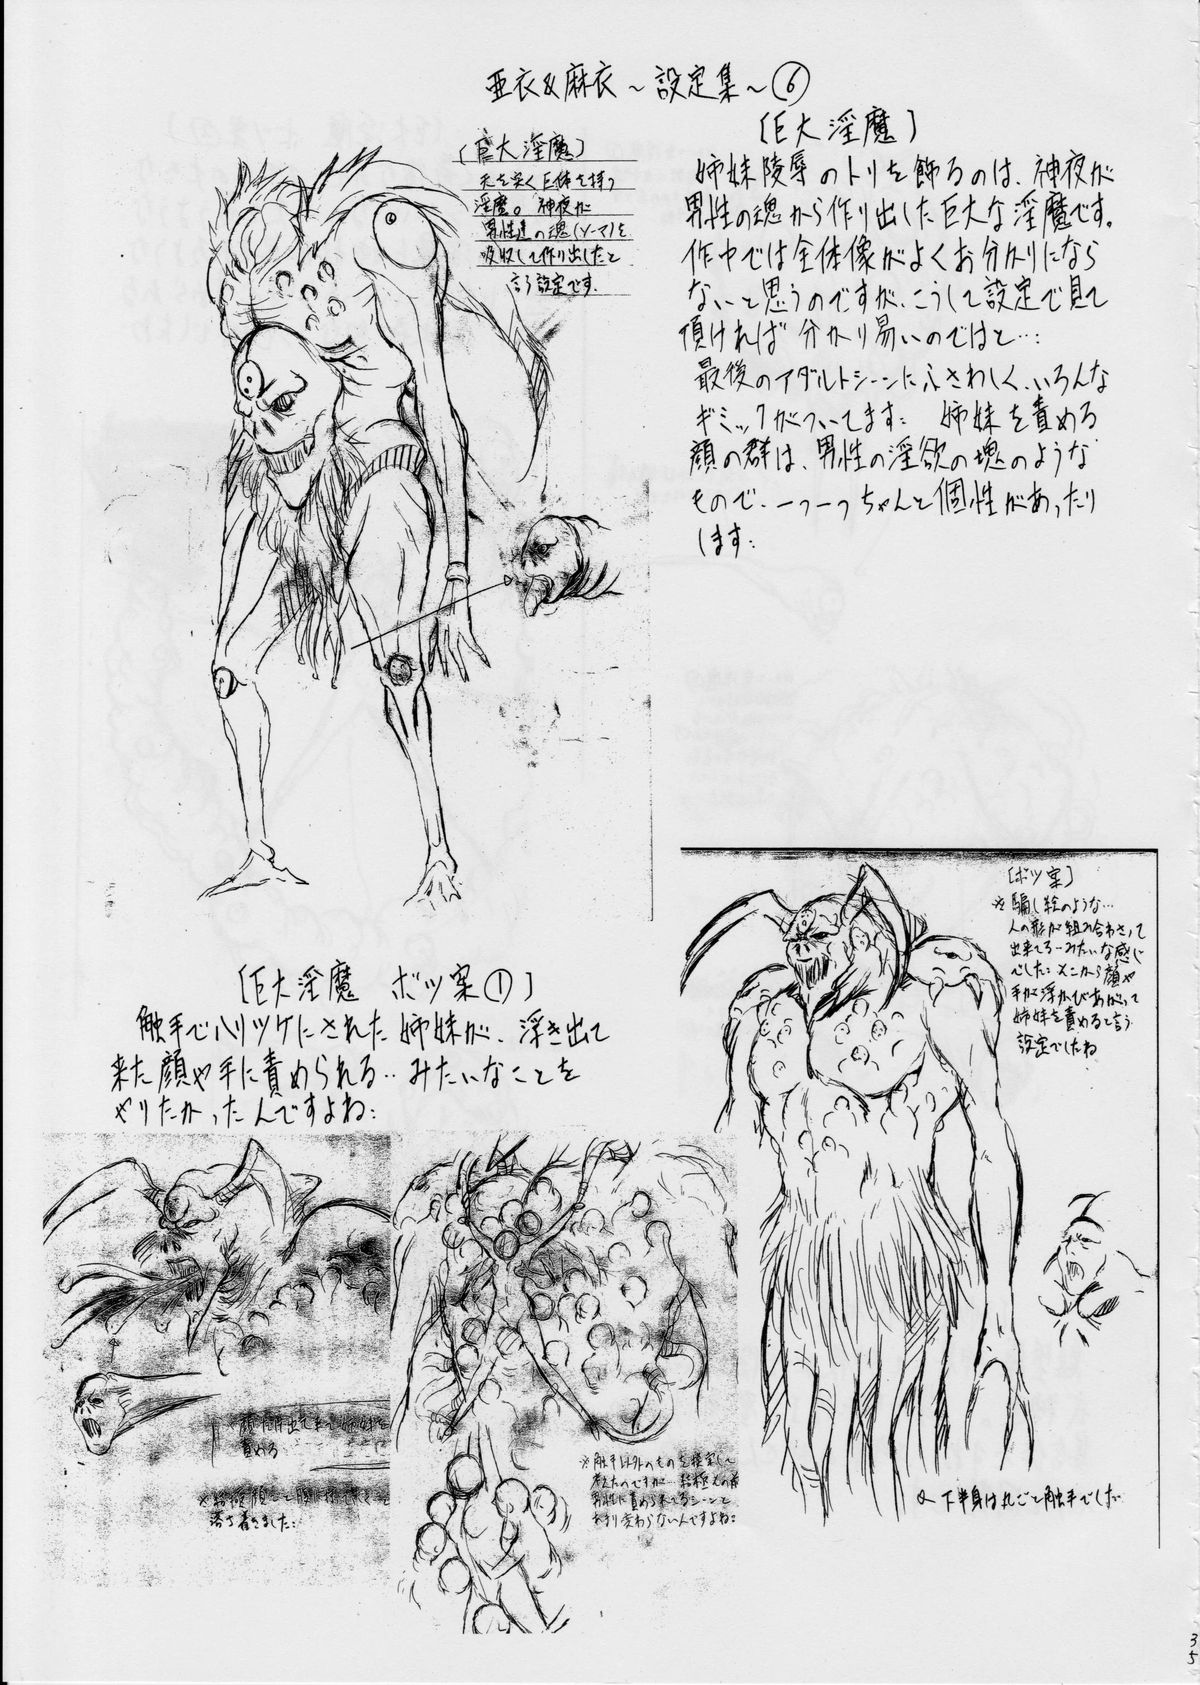 亜衣&麻衣～設定集～⑥
〔巨大淫魔〕
天を突く巨体を持つ
淫魔。神夜が
男性達の魂(ソーマ)を
吸収して作り出したと
言う設定です.
〔巨大淫魔〕
姉妹陵辱のトリを飾るのは、神夜が
男性の魂から作り出した巨大な淫魔です。
作中では全体像がよくお分かりになら
ないと思うのですが、こうして設定で見て
頂ければ分かり易いのではと…:
最後のアダルトシーンにふさわしく、いろんな
ギミックがついてます: 姉妹を責める
顔の群は、男性の淫欲の塊のような
もので、一つ一つちゃんと個性があったり
します:
〔ボツ案〕
※騙し絵のような…
人の形が組み合わさって
出来てるーみたいな感じ
でした: そこから顔や
手が浮かびあがって
姉妹を責めると言う
設定でしたね
〔巨大淫魔 ボツ案①〕
触手でハリツケにされた姉妹が、浮き出て
来た顔や手に責められる‥みたいなことを
やりたかったんですよね:
責める
落ち着きました:
※触手以外のものを
考えたのですが…結局
男性に責められてるシーンと
変わらないんですよね:
下半身は丸ごと触手でした
35